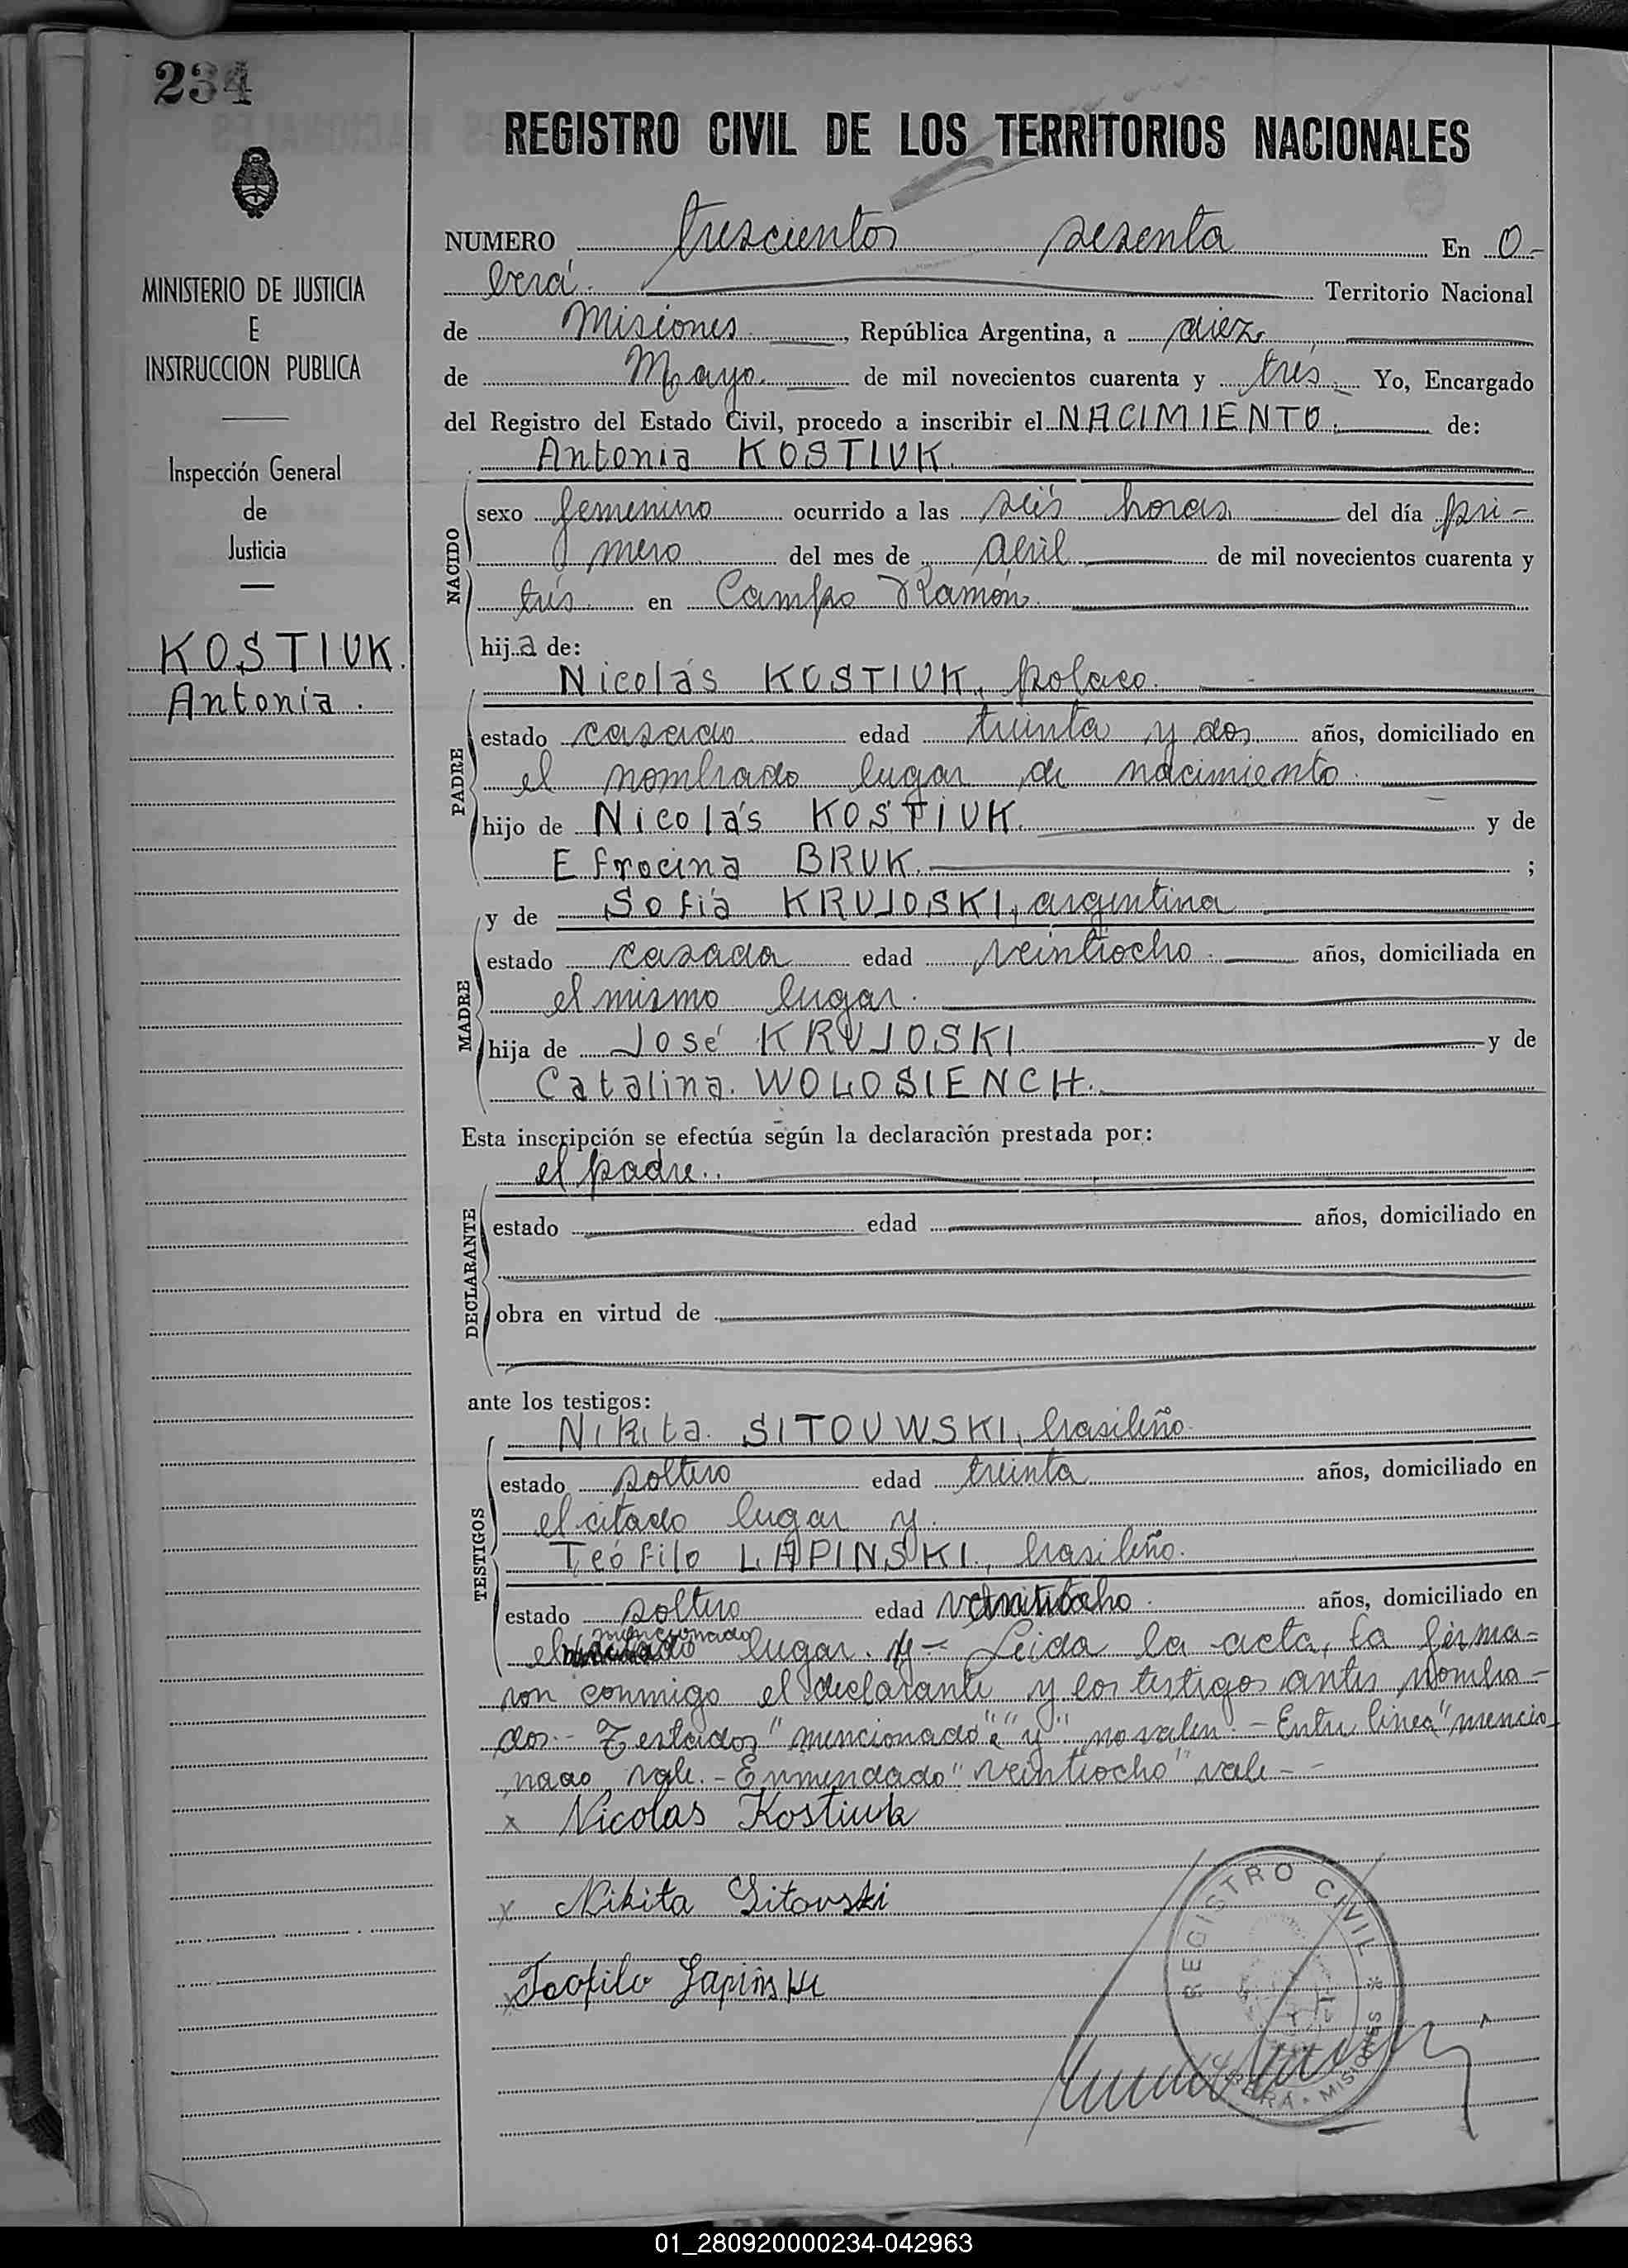 234
MINISTERIO DE JUSTICIA
E
INSTRUCCION PUBLICA
Inspección General
de
Justicia
KOSTIUK.
Antonia.
REGISTRO CIVIL DE LOS TERRITORIOS NACIONALES
NUMERO trescientos sesenta En O-
berá. Territorio Nacional
de Misiones, República Argentina, a diez
de Mayo. de mil novecientos cuarenta y trés. Yo, Encargado
del Registro del Estado Civil, procedo a inscribir el NACIMIENTO. de:
Antonia KOSTIUK.
NACIDO
sexo femenino ocurrido a las seis horas del día pri-
mero del mes de Abril de mil novecientos cuarenta y
trés en Campo Ramón.
hija de:
PADRE
Nicolás KOSTIUK, polaco.
estado casado edad treinta y dos años, domiciliado en
el nombrado lugar de nacimiento.
hijo de Nicolás KOSTIUK. y de
Efrocina BRUK. ;
MADRE
y de Sofía KRUJOSKI, argentina
estado casada edad veintiocho. años, domiciliada en
el mismo lugar.
hija de José KRUJOSKI y de
Catalina. WOLOSIENCH.
Esta inscripción se efectúa según la declaración prestada por:
el padre..
DECLARANTE
estado edad años, domiciliado en
obra en virtud de
ante los testigos:
TESTIGOS
Nikita. SITOUWSKI, brasileño.
estado soltero edad treinta años, domiciliado en
el citado lugar y.
Teófilo LAPINSKI, brasileño.
estado soltero edad veintiocho. años, domiciliado en
mencionado
el lugar. y- Leida la acta, la firma-
ron conmigo el declarante y los testigos antes nombra-
dos.- Testados "mencionado" é "y" no valen.- Entre línea "mencio
nado vale.- Enmendado "veintiocho" vale--
x Nicolas Kostiuk
x Nikita Sitovski
x Teofilo Lapinski
REGISTRO CIVIL * OBERA - MISIONES
01_280920000234-042963